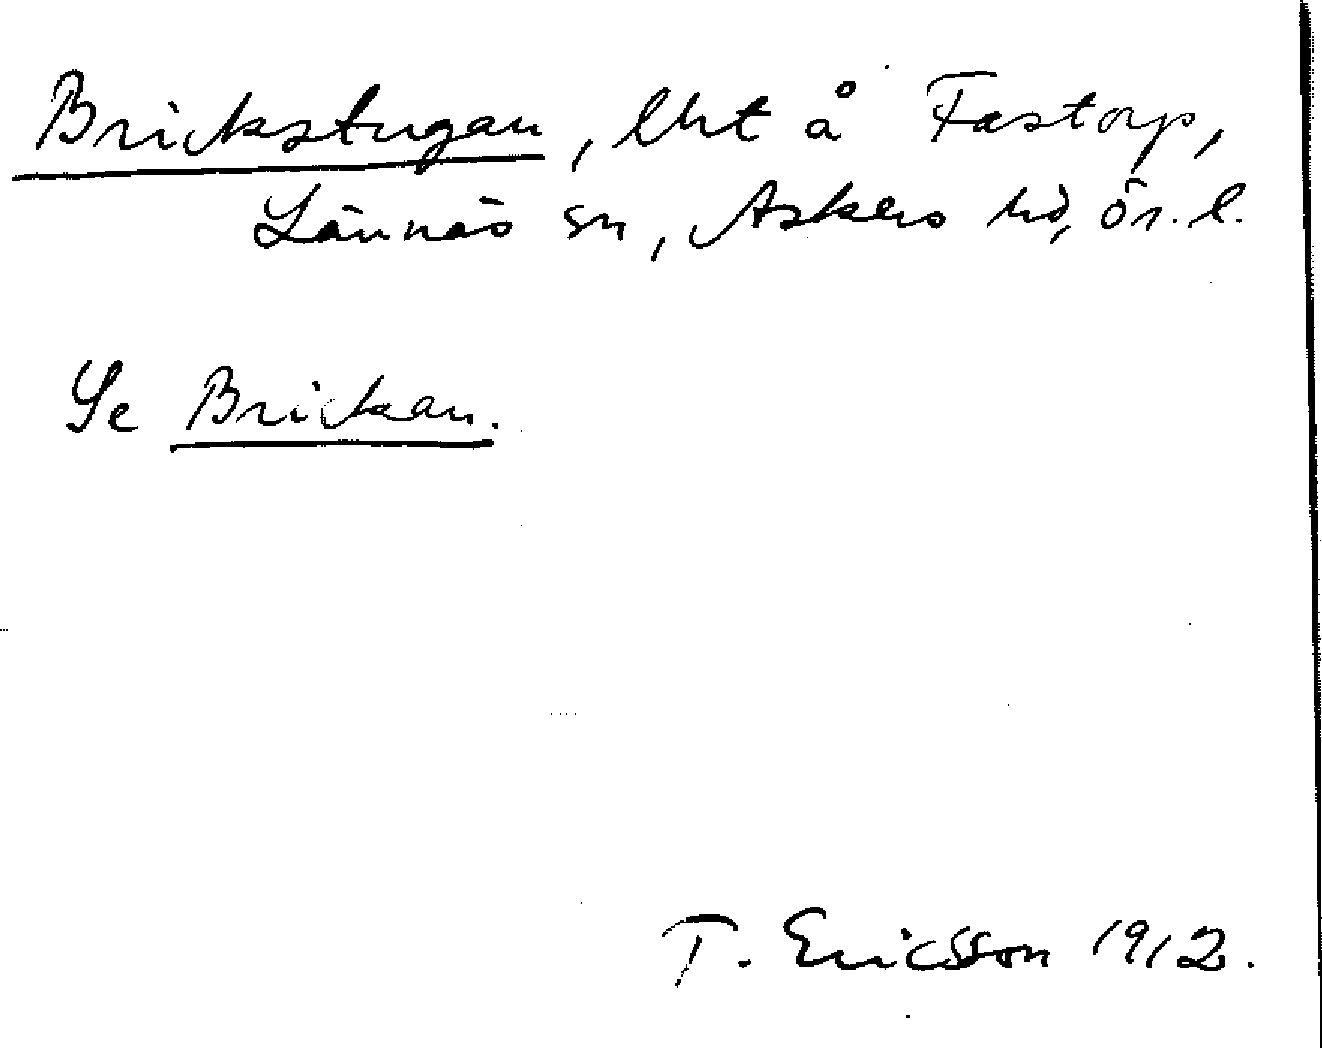 Brickstugan, lht å Fastorp,
Lännäs sn, Askers hd, Ör. l.
Se Brickan.
T. Ericsson 1912.